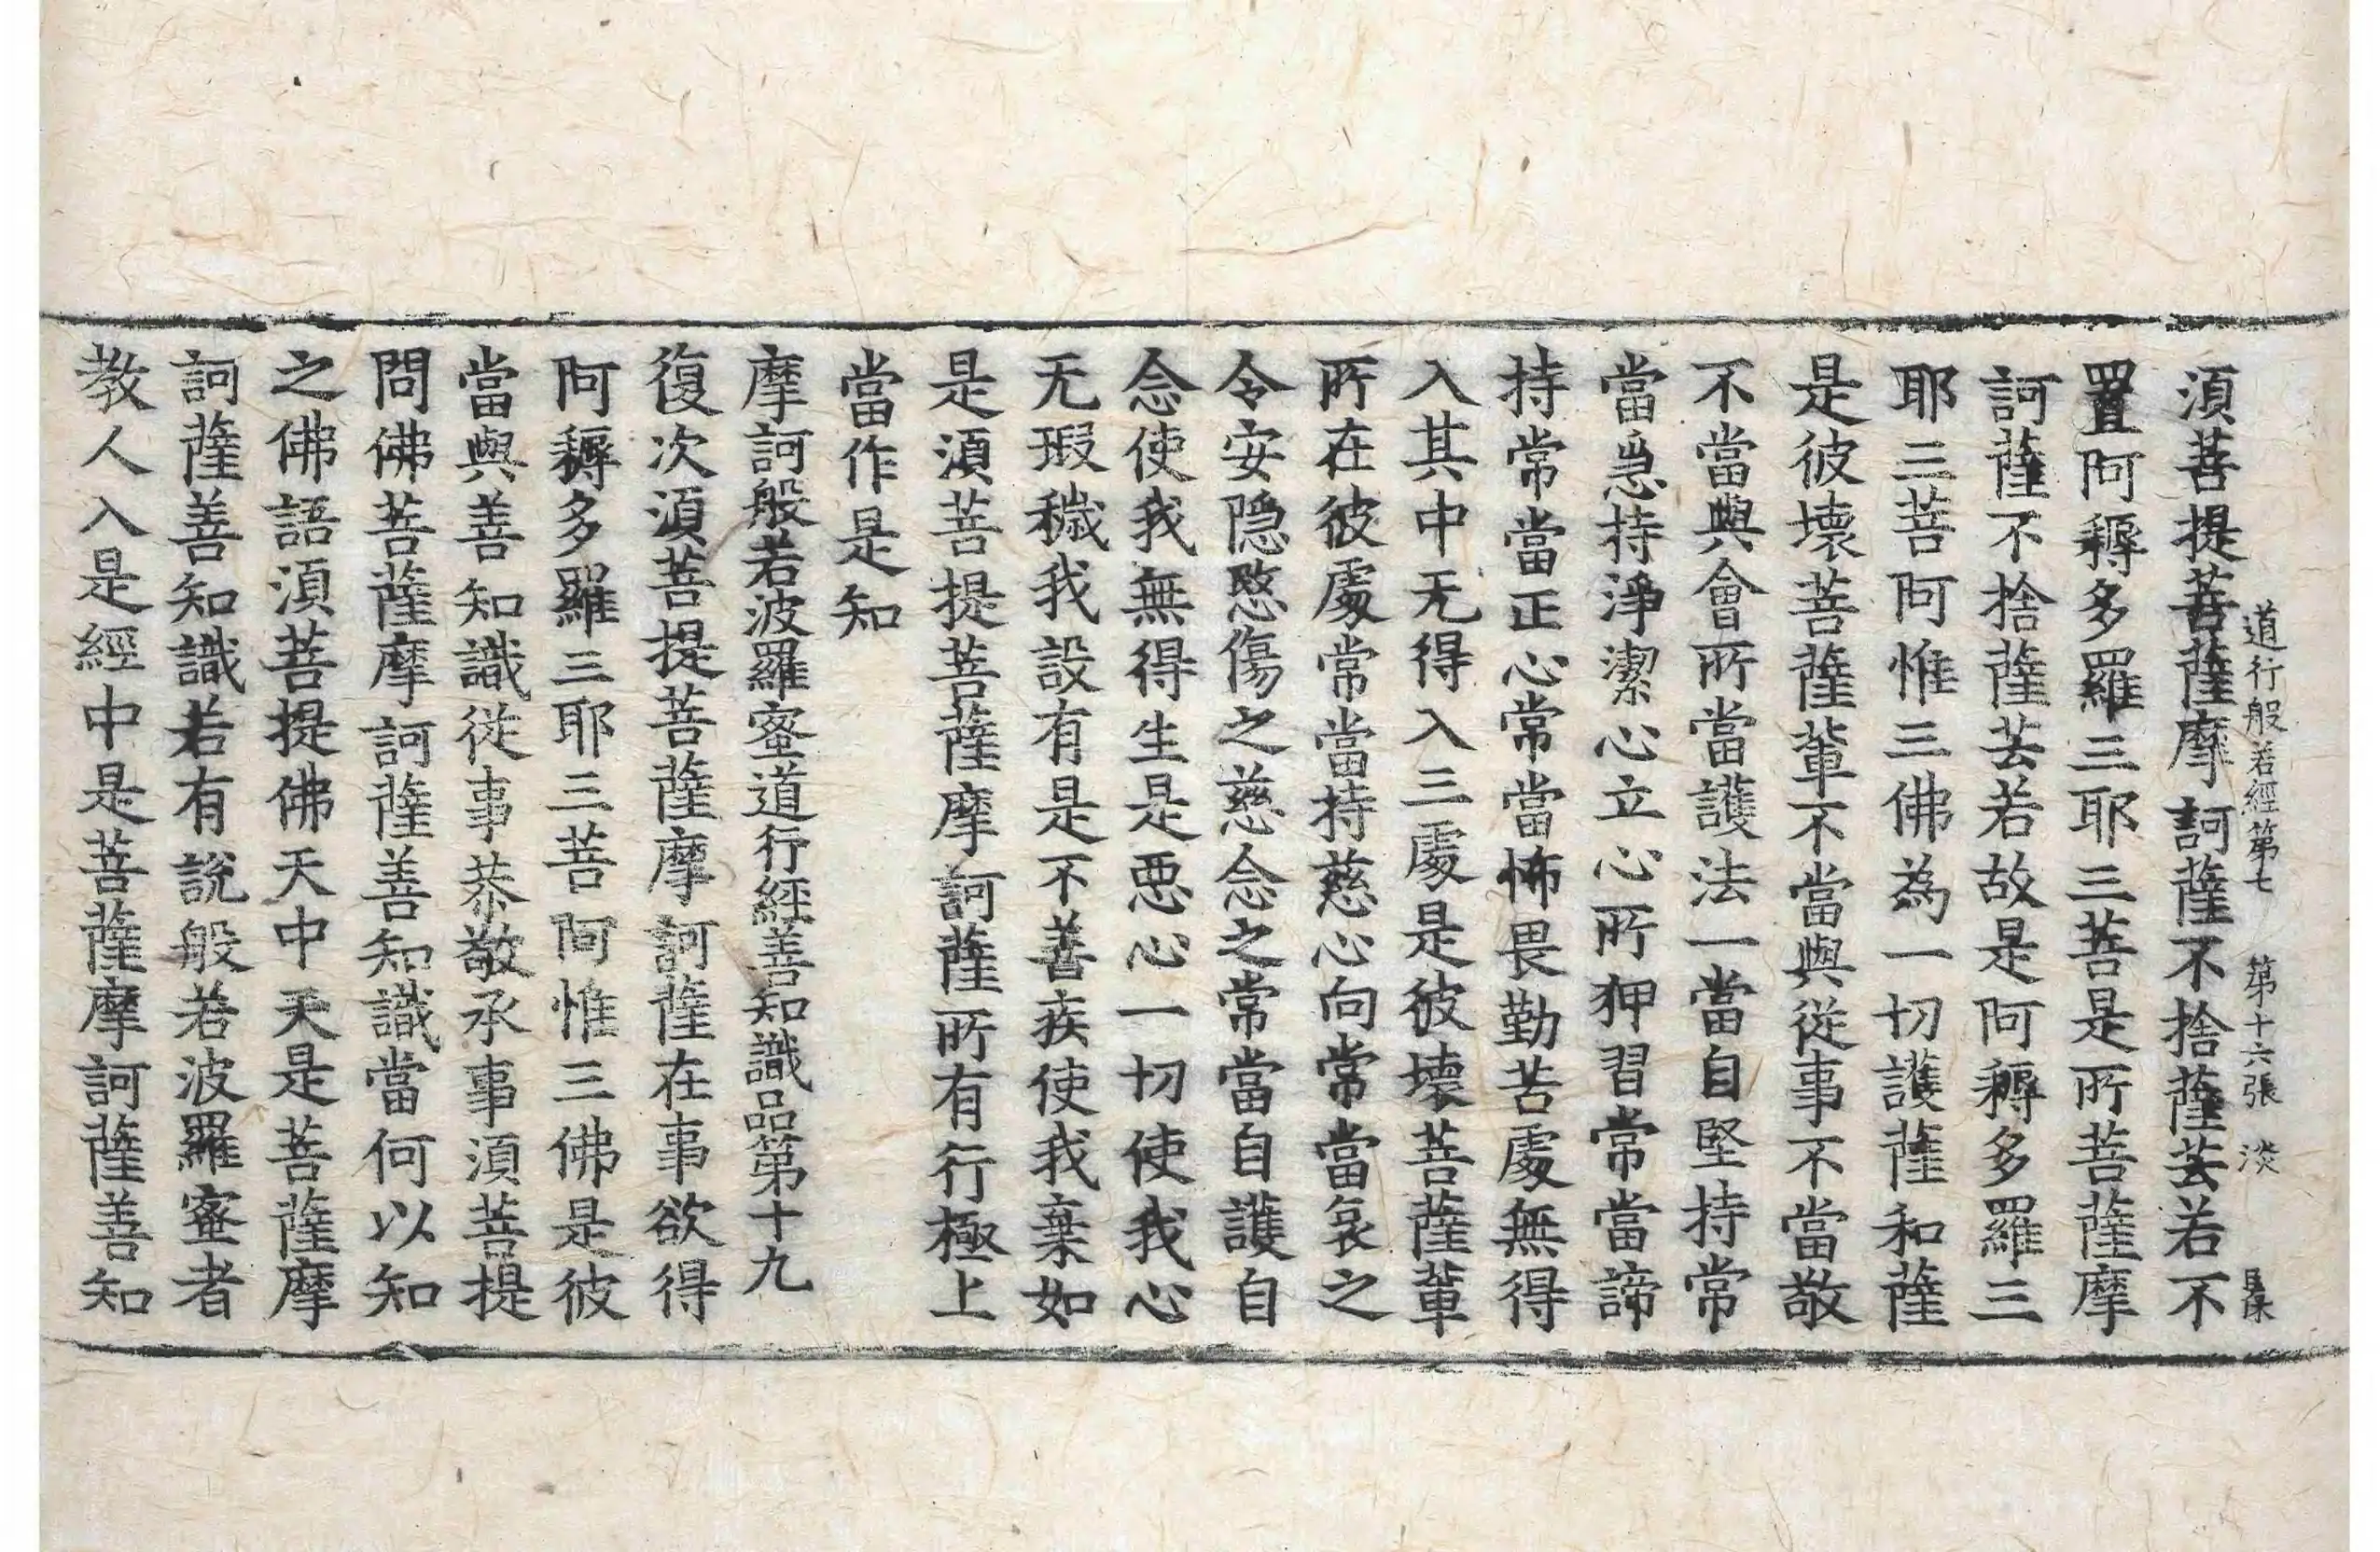 道行般若經第七 第十六張 淡
湏菩提菩薩摩訶薩不捨薩芸若不
置阿耨多羅三耶三菩是所菩薩摩
訶薩不捨薩芸若故是阿耨多羅三
耶三菩阿惟三佛為一切護薩和薩
是彼壞菩薩軰不當與從事不當敬
不當與會所當護法一當自堅持常
當急持淨潔心立心所狎習常當諦
持常當正心常當怖畏勤苦處無得
入其中无得入三處是彼壞菩薩軰
所在彼處常當持慈心向常當哀之
令安隠愍傷之慈念之常當自護自
念使我無得生是惡心一切使我心
无瑕穢我設有是不善疾使我棄如
是湏菩提菩薩摩訶薩所有行極上
當作是知
摩訶般若波羅蜜道行經善知識品第十九
復次湏菩提菩薩摩訶薩在事欲得
阿耨多羅三耶三菩阿惟三佛是彼
當與善知識從事恭敬承事湏菩提
問佛菩薩摩訶薩善知識當何以知
之佛語湏菩提佛天中天是菩薩摩
訶薩善知識若有說般若波羅蜜者
教人入是經中是菩薩摩訶薩善知